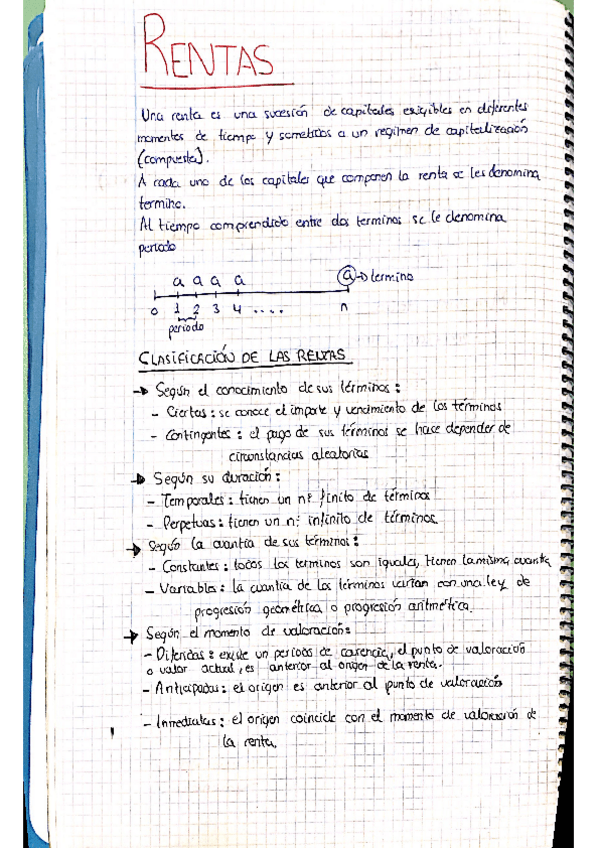 RENTAS
Una renta es una sucesión de capitales exigibles en diferentes
momentos de tiempo y sometidos a un regimen de capitalización
(compuesta).
A cada uno de los capitales que componen la renta se les denomina
termino.
Al tiempo comprendido entre dos terminos se le denomina
periodo
a a a a a → termino
0 1 2 3 4 .... n
periodo
CLASIFICACIÓN DE LAS RENTAS
→ Según el conocimiento de sus términos:
- Ciertas: se conoce el importe y vencimiento de los términos
- Contingentes: el pago de sus términos se hace depender de
circunstancias aleatorias
→ Según su duración:
- Temporales: tienen un nº finito de términos
- Perpetuas: tienen un nº infinito de términos
→ Según la cuantía de sus términos:
- Constantes: todos los terminos son iguales, tienen la misma cuantía
- Variables: la cuantía de los términos varían con una ley de
progresión geométrica o progresión aritmética.
→ Según el momento de valoración:
- Diferidas: existe un periodo de carencia, el punto de valoración
o valor actual, es anterior al origen de la renta.
- Anticipadas: el origen es anterior al punto de valoración
- Inmediatas: el origen coincide con el momento de valoración de
la renta.